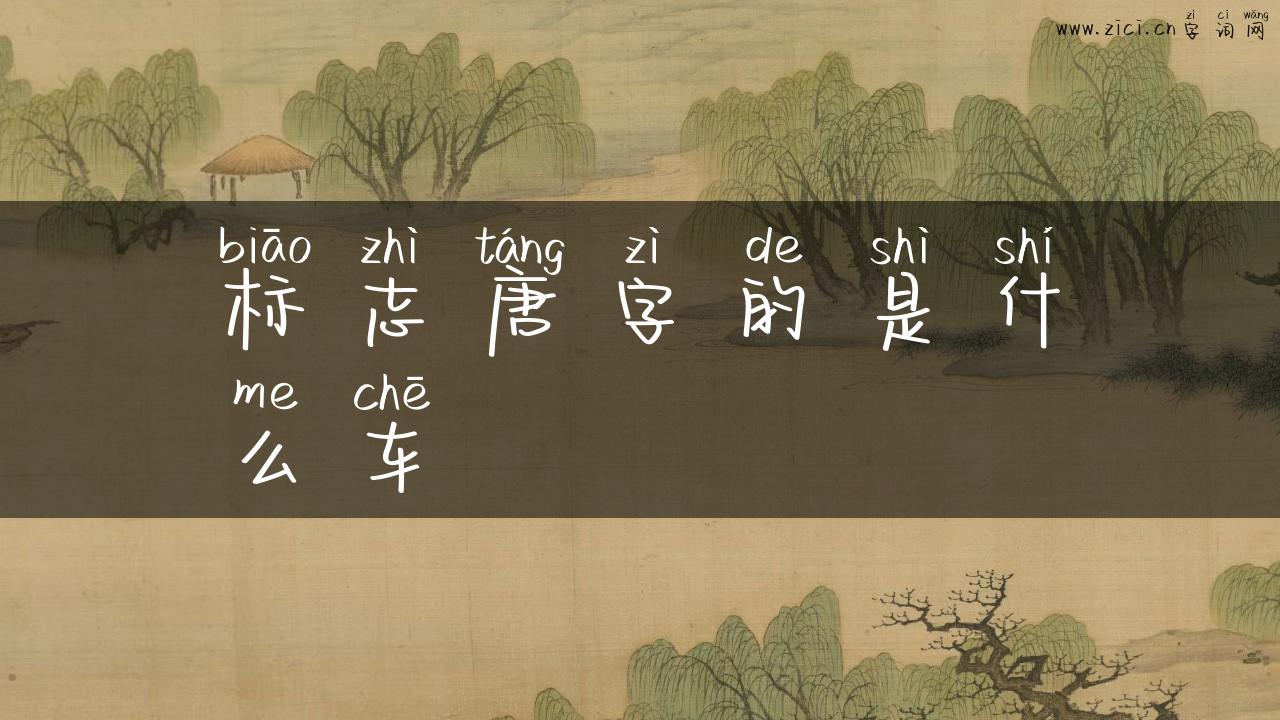 zì cí wǎng
www.zici.cn 字词网
biāo zhì táng zì de shì shí
标志唐字的是什
me chē
么车